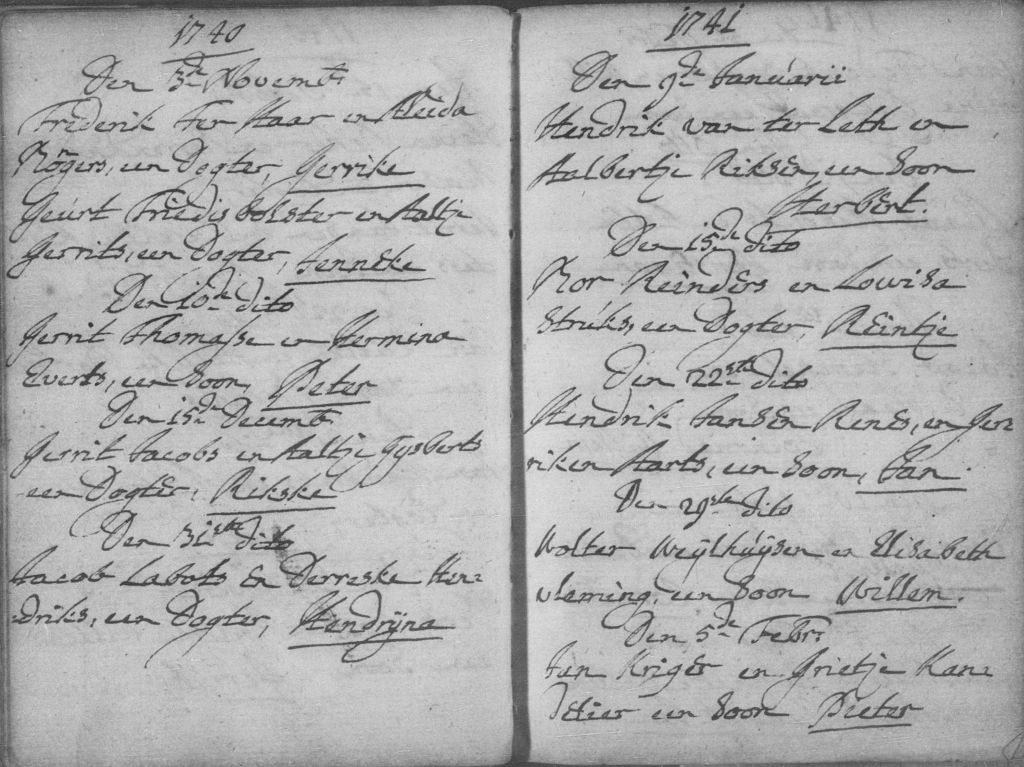 1740
Den 3de Novemb:
Frederik Ter Haar en Aleida
Rögers, een Dogter, Gerrike
Geurt Friedis bolster en Aaltje
Gerrits, een Dogter, Jenneke
Den 10de dito
Gerrit Thomasse en Hermina
Everts, een Soon, Peter
Den 15de Decemb:
Gerrit Jacobs en Aaltje Gysberts
een Dogter, Rikske
Den 31ste dito
Jacob Labots en Derreske Hen=
driks, een Dogter, Hendrÿna
1741
Den 9de Januarii
Hendrik van ter Leth en
Aalbertje Riksen, een Soon
Herbert.
Den 15de dito
Mor Reinders en Lowisa
Struks, een Dogter, Reintje
Den 22ste dito
Hendrik Jansen Renes, en Ger=
riken Aarts, een Soon, Jan.
Den 29ste dito
Wolter Weÿlhuÿsen en Elisabeth
vleming, een Soon Willem.
Den 5de Febr:
Jan Kriger en Grietje Kan=
delier een Soon Peeter